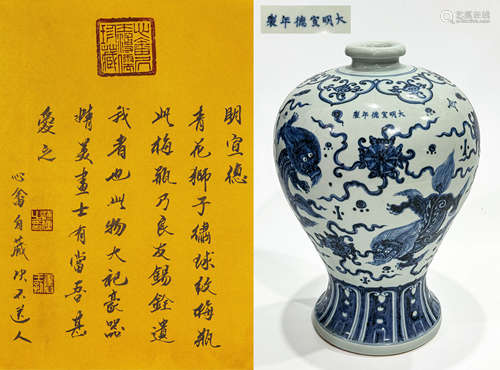 明宣德
青花獅子繡球紋梅瓶
此梅瓶乃良友錫銓遺
我者也此物大祀豪器
精美畫士有當吾甚
愛之
心畬自藏
人
珍藏
製年德宣明大
製年德宣明大